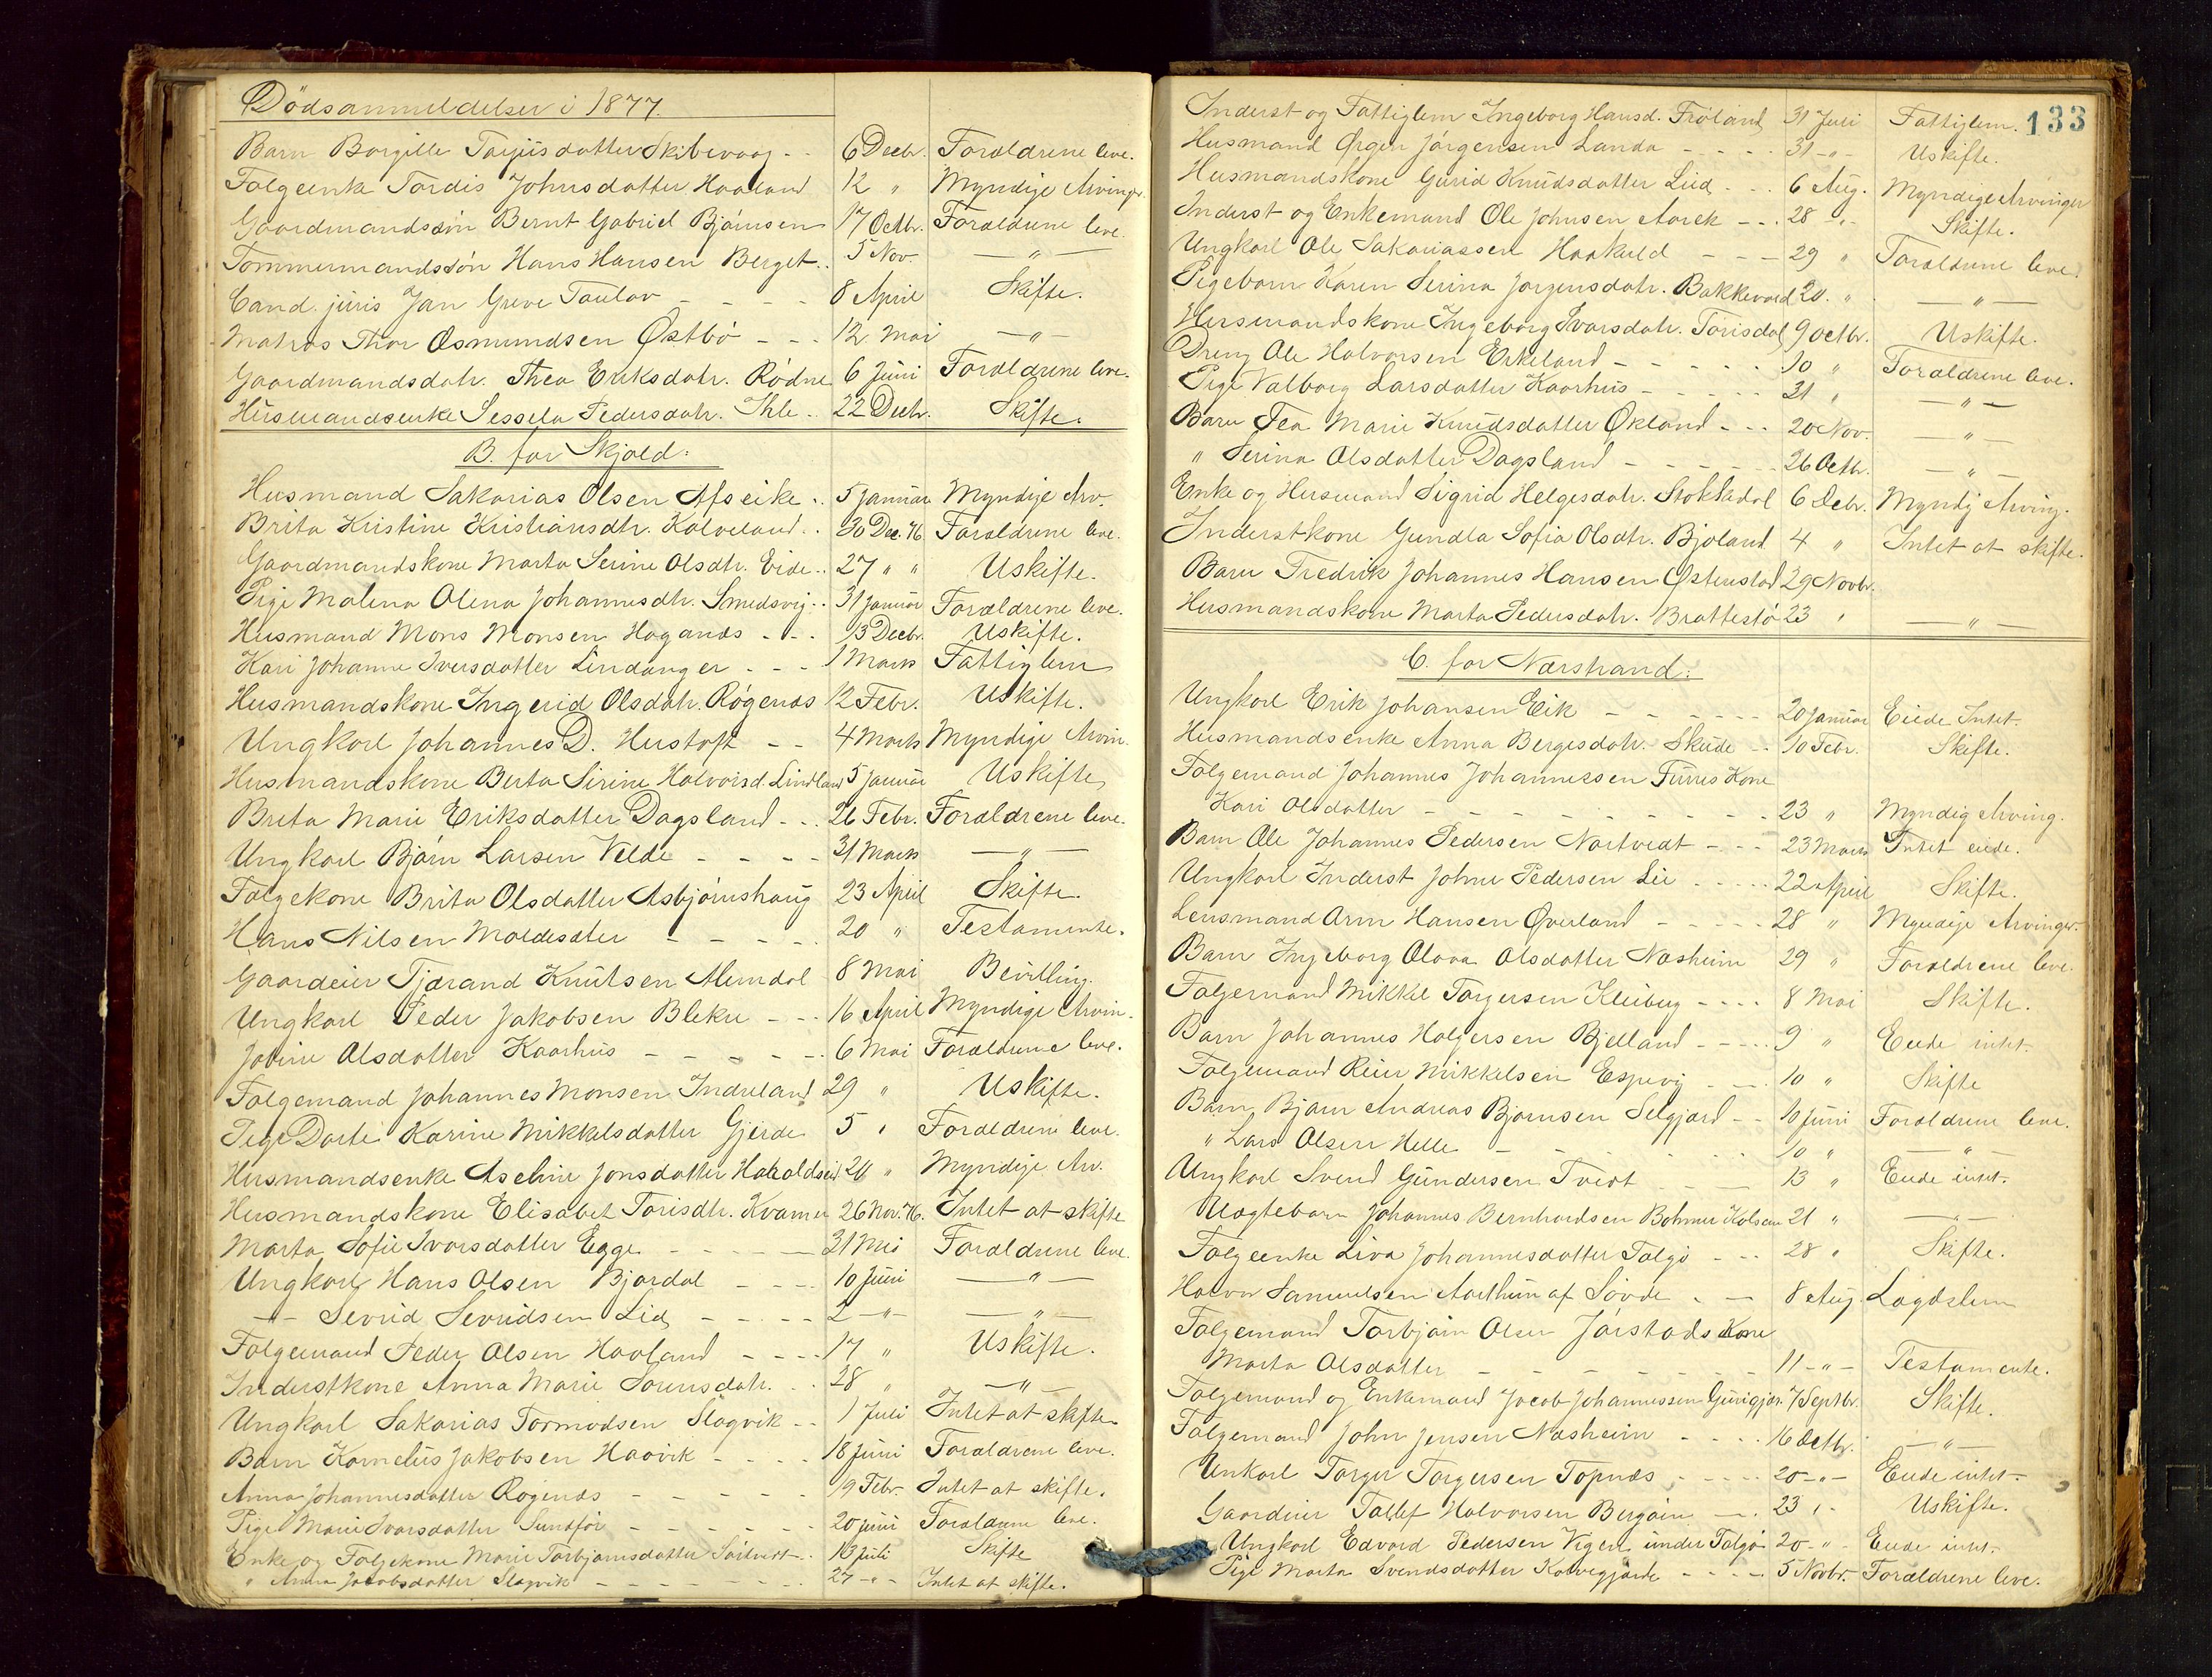 Dödsanmeldelser i 1877.
Barn Borgille Tarjeisdatter Skibevaag - - 6 Decbr. Forældrene leve.
Følgeenke Tordis Johnsdatter Haaland 12 " Myndige Arvinger
Gaardmandssön Bernt Gabriel Bjørnsen 17 Octbr. Forældrene leve.
Tømmermandssön Hans Hansen Berget .. 5 Nov. — " —
Cand. juris Jan Greve Taulov - - - - 8 April Skifte.
Matros Thor Osmundsen Østbö - - - 12 Mai — " —
Gaardmandsdatr. Thea Eriksdatr. Rødne 6 Juni Forældrene leve.
Husmandsenke Sessela Pedersdatr. Ihle .. 22 Decbr. Skifte.
B. for Skjold:
Husmand Sakarias Olsen Alfseike .. 5 Januar Myndige Arv.
Brita Kristine Kristiansdtr. Kalveland .. 30 Dec. 76 Forældrene leve.
Gaardmandskone Marta Serine Olsdtr. Eide .. 27 " " Uskifte.
Pige Malena Olena Johannesdtr. Smedsvig .. 31 Januar Forældrene leve.
Husmand Mons Monsen Haganæs - . - 13 Decbr. Uskifte.
Kari Johanne Iversdatter Lindanger - - - 1 Marts Fattiglem
Husmandskone Ingerid Olsdatr. Røgenæs 12 Febr. Uskifte.
Ungkarl Johannes D. Hustoft - - 4 Marts Myndige Arvin.
Husmandskone Berta Sirine Halvorsd. Lindland 5 Januar Uskifte
Breta Marie Eriksdatter Dagsland - - . 26 Febr. Forældrene leve.
Ungkarl Bjørn Larsen Velde - - - - 31 Marts — " —
Følgekone Brita Olsdatter Asbjørnshaug 23 April Skifte.
Hans Nilsen Moldesæter - - - - 20 " Testamente.
Gaardeier Tjærand Knutsen Alendal 8 Mai Bevilling.
Ungkarl Peder Jakobsen Bleke - - - 16 April Myndige Arvin.
Jorine Olsdatter Kaarhus - - - - - . 6 Mai Forældrene leve.
Følgemand Johannes Monsen Indreland 29 " Uskifte.
Pige Dorte Karine Mikkelsdatter Gjerde 5 " Forældrene leve.
Husmandsenke Aseline Jonsdatter Haraldseid 20 " Myndige Arv.
Husmandskone Elisabet Torisdtr. Kvamen 26 Nov. 76. Intet at skifte
Marta Sofie Ivarsdatter Egge - - - - - 31 Mai Forældrene leve.
Ungkarl Hans Olsen Bjordal - - - - 10 Juni — " —
— " — Sevrid Sevridsen Lid - - - - - 2 - " - — " —
Følgemand Peder Olsen Haaland - - - - 17 " Uskifte.
Inderstkone Anna Marie Sorensdatr. . . 28 " — " —
Ungkarl Sakarias Tormodsen Slagvik - - 1 Juli Intet at skifte
Barn Kornelius Jakobsen Haavik - - - - 18 Juni Forældrene leve.
Anna Johannesdatter Røgenæs - - - - - 19 Febr. Intet at skifte.
Pige Marie Ivarsdatter Sundför - - - - - - 20 Juni Forældrene leve.
Enke og Følgekone Marie Torbjørnsdatter - . 13 Juli Skifte
" Anna Jacobsdatter Slagvik - - - - - - - 27 - " - Intet at skifte.
133
Inderst og Fattiglem Ingeborg Hansd. Fröland 31 Juli Fattiglem.
Husmand Ørgen Jörgensen Landa - - - - 31 - " - Uskifte.
Husmandskone Gurid Knudsdatter Lied - - - 6 Aug. Myndige Arvinger
Inderst og Enkemand Ole Johnsen Aarek - - . 28 - " - Skifte.
Ungkarl Ole Sakariassen Haakuld - - - 29 " Forældrene leve.
Pigebarn Karen Serina Jørgensdatr. Bakkevold 20. " — " —
Husmandskone Ingeborg Ivarsdatr. Törisdal 9 Octbr. Uskifte.
Dreng Ole Halvorsen Eikeland - - - - - - 10 " Forældrene leve.
Pige Valborg Larsdatter Kaarhus - - - - - 31 " — " —
Barn Tea Marie Knudsdatter Økland - - - 20 Nov. — " —
" Serina Olsdatter Dagsland - - - - - - 26 Octbr. — " —
Enke og Husmand Sigrid Helgesdatr. Stokkedal 6 Debr. Myndig Arving.
Inderstkone Gundla Sofia Olsdtr. Bjoland 4 " Intet at skifte.
Barn Fredrik Johannes Hansen Østenstad 29 Novbr.
Husmandskone Marta Pedersdatr. Brattestö 23 " — " —
C. for Nærstrand:
Ungkarl Erik Johansen Eik - - - - - - - 20 Januar Eiede Intet.
Husmandsenke Anna Bergesdatr. Skeide - - 10 Febr. Skifte.
Følgemand Johannes Johannessen Furres Kone
Kari Olsdatter - - - - - - - - - - - 23 " Myndig Arving.
Barn Ole Johannes Pedersen Nortvedt - - - 23 Marts Intet eiede.
Ungkarl Inderst Johne Pedersen Lie - - - - 22 April Skifte.
Lensmand Arm Hansen Øverland - - - - - 28 " Myndige Arvinger.
Barn Ingeborg Olava Olsdatter Næsheim 29 " Forældrene leve.
Følgemand Mikkel Torgersen Kleiberg - - - - 8 Mai Skifte.
Barn Johannes Holgersen Bjelland - - . . . 9 " Eiede intet.
Følgemand Reier Mikkelsen Espevig . - . 10 " Skifte
Barn Bjørn Andreas Bjørnsen Selgjerd - - 10 Juni Forældrene leve.
" Lars Olsen Helle - - - . . . 10 " — " —
Ungkarl Svend Gundersen Tveit - - — 13 " Eiede intet.
Uægtebarn Johannes Bernhardsen Bohmer Kolsem 21 " — " —
Følgeenke Liva Johannesdatter Talgö - - - 28 " Skifte.
Halvor Samuelsen Aarthun af Søvde . — 8 Aug. Lægdslem
Følgemand Torbjörn Olsen Jörstads Kone
Marta Olsdatter - - - - - - - - 11 - " - Testamente.
Følgemand og Enkemand Jacob Johannessen 7 Septbr. Skifte.
Følgemand John Jensen Næsheim - - - - 16 Octbr. — " —
Unkarl Torger Torgersen Topnæs - - - - - 20 - " - Eiede intet.
Gaardeier Tollef Halvorsen Bergöin - - . 23 " - Uskifte.
Ungkarl Edvard Pedersen Vigen under Talgö 20 - " - Eiede intet.
Pige Marta Svendsdatter Kalvegjærde - - - - 5 Novbr. Forældrene leve.